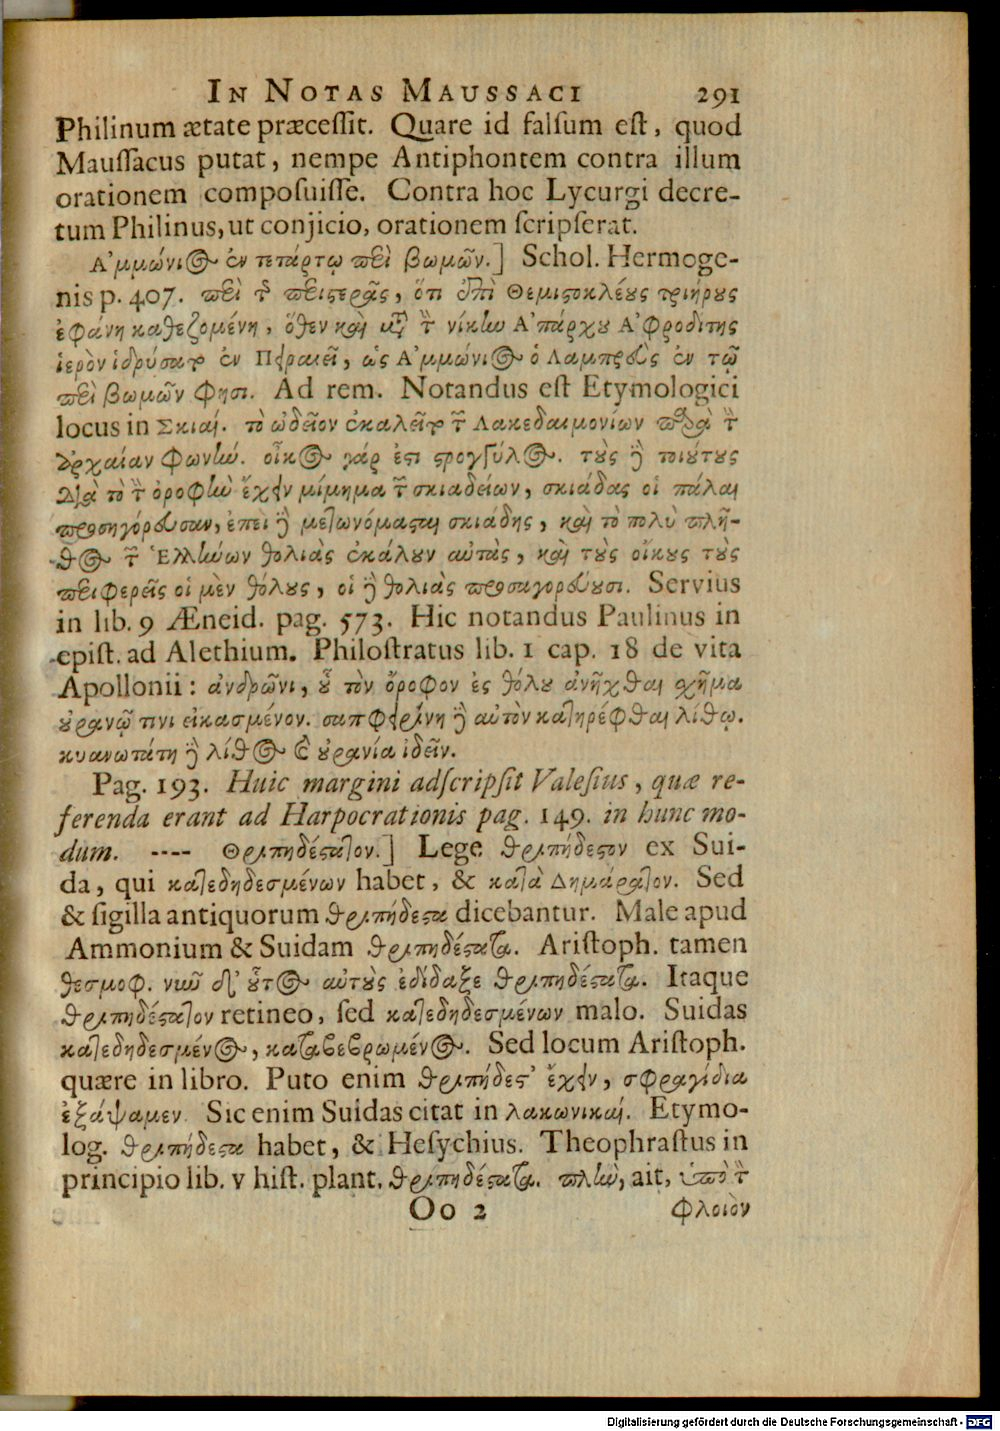 In Notas Maussaci 291
Philinum ætate præcessit. Quare id falsum est, quod
Maussacus putat, nempe Antiphontem contra illum
orationem composuisse. Contra hoc Lycurgi decre-
tum Philinus, ut conjicio, orationem scripserat.
Ἀμμώνιος ἐν τετάρτῳ περὶ βωμῶν.] Schol. Hermoge-
nis p. 407. περὶ τῆς περιστερᾶς, ὅτι ἐπὶ Θεμιστοκλέους τριήρους
ἐφάνη καθεζομένη, ὅθεν καὶ μετὰ τὴν νίκην Ἀπάρχου Ἀφροδίτης
ἱερὸν ἱδρύσατο ἐν Πειραιεῖ, ὡς Ἀμμώνιος ὁ Λαμπρεὺς ἐν τῷ
περὶ βωμῶν φησι. Ad rem. Notandus est Etymologici
locus in Σκιαί. τὸ ᾠδεῖον ἐκαλεῖτο τῶν Λακεδαιμονίων παρὰ τὴν
ἀρχαίαν φωνήν. οἶκος γάρ ἐστι στρογγύλος. τοὺς δὲ τοιούτους
διὰ τὸ τὴν ὀροφὴν ἔχειν μίμημα τῶν σκιαδείων, σκιάδας οἱ πάλαι
προσηγόρευσαν, ἐπεὶ δὲ μετωνόμασται σκιάδης, καὶ τὸ πολὺ πλῆ-
θος τῶν Ἑλλήνων θολιὰς ἐκάλουν αὐτὰς, καὶ τοὺς οἴκους τοὺς
περιφερεῖς οἱ μὲν θόλους, οἱ δὲ θολιὰς προσαγορεύουσι. Servius
in lib. 9 Æneid. pag. 573. Hic notandus Paulinus in
epist. ad Alethium. Philostratus lib. 1 cap. 18 de vita
Apollonii: ἀνδρῶνι, οὗ τὸν ὄροφον ἐς θόλου ἀνῆχθαι σχῆμα
οὐρανῷ τινι εἰκασμένον. σαπφειρίνη δὲ αὐτὸν κατηρέφθαι λίθῳ.
κυανωτάτη δὲ ἡ λίθος καὶ οὐρανία ἰδεῖν.
Pag. 193. Huic margini adscripsit Valesius, quæ re-
ferenda erant ad Harpocrationis pag. 149. in hunc mo-
dum. ---- Θριπηδέστατον.] Lege θριπήδεστον ex Sui-
da, qui κατεδηδεσμένων habet, & κατὰ Δημάρατον. Sed
& sigilla antiquorum θριπήδεστα dicebantur. Male apud
Ammonium & Suidam θριπηδέστατα. Aristoph. tamen
θεσμοφ. νῦν δ' οὗτος αὐτοὺς ἐδίδαξε θριπηδέστατα. Itaque
θριπηδέστατον retineo, sed κατεδηδεσμένων malo. Suidas
κατεδηδεσμένος, καταβεβρωμένος. Sed locum Aristoph.
quære in libro. Puto enim θριπήδεστ' ἔχειν, σφραγίδια
ἐξάψαμεν. Sic enim Suidas citat in λακωνικαί. Etymo-
log. θριπήδεστα habet, & Hesychius. Theophrastus in
principio lib. v hist. plant. θριπηδέστατα. πλὴν, ait, ὑπὸ τὸν
Oo 2 φλοιὸν
Digitalisierung gefördert durch die Deutsche Forschungsgemeinschaft - DFG